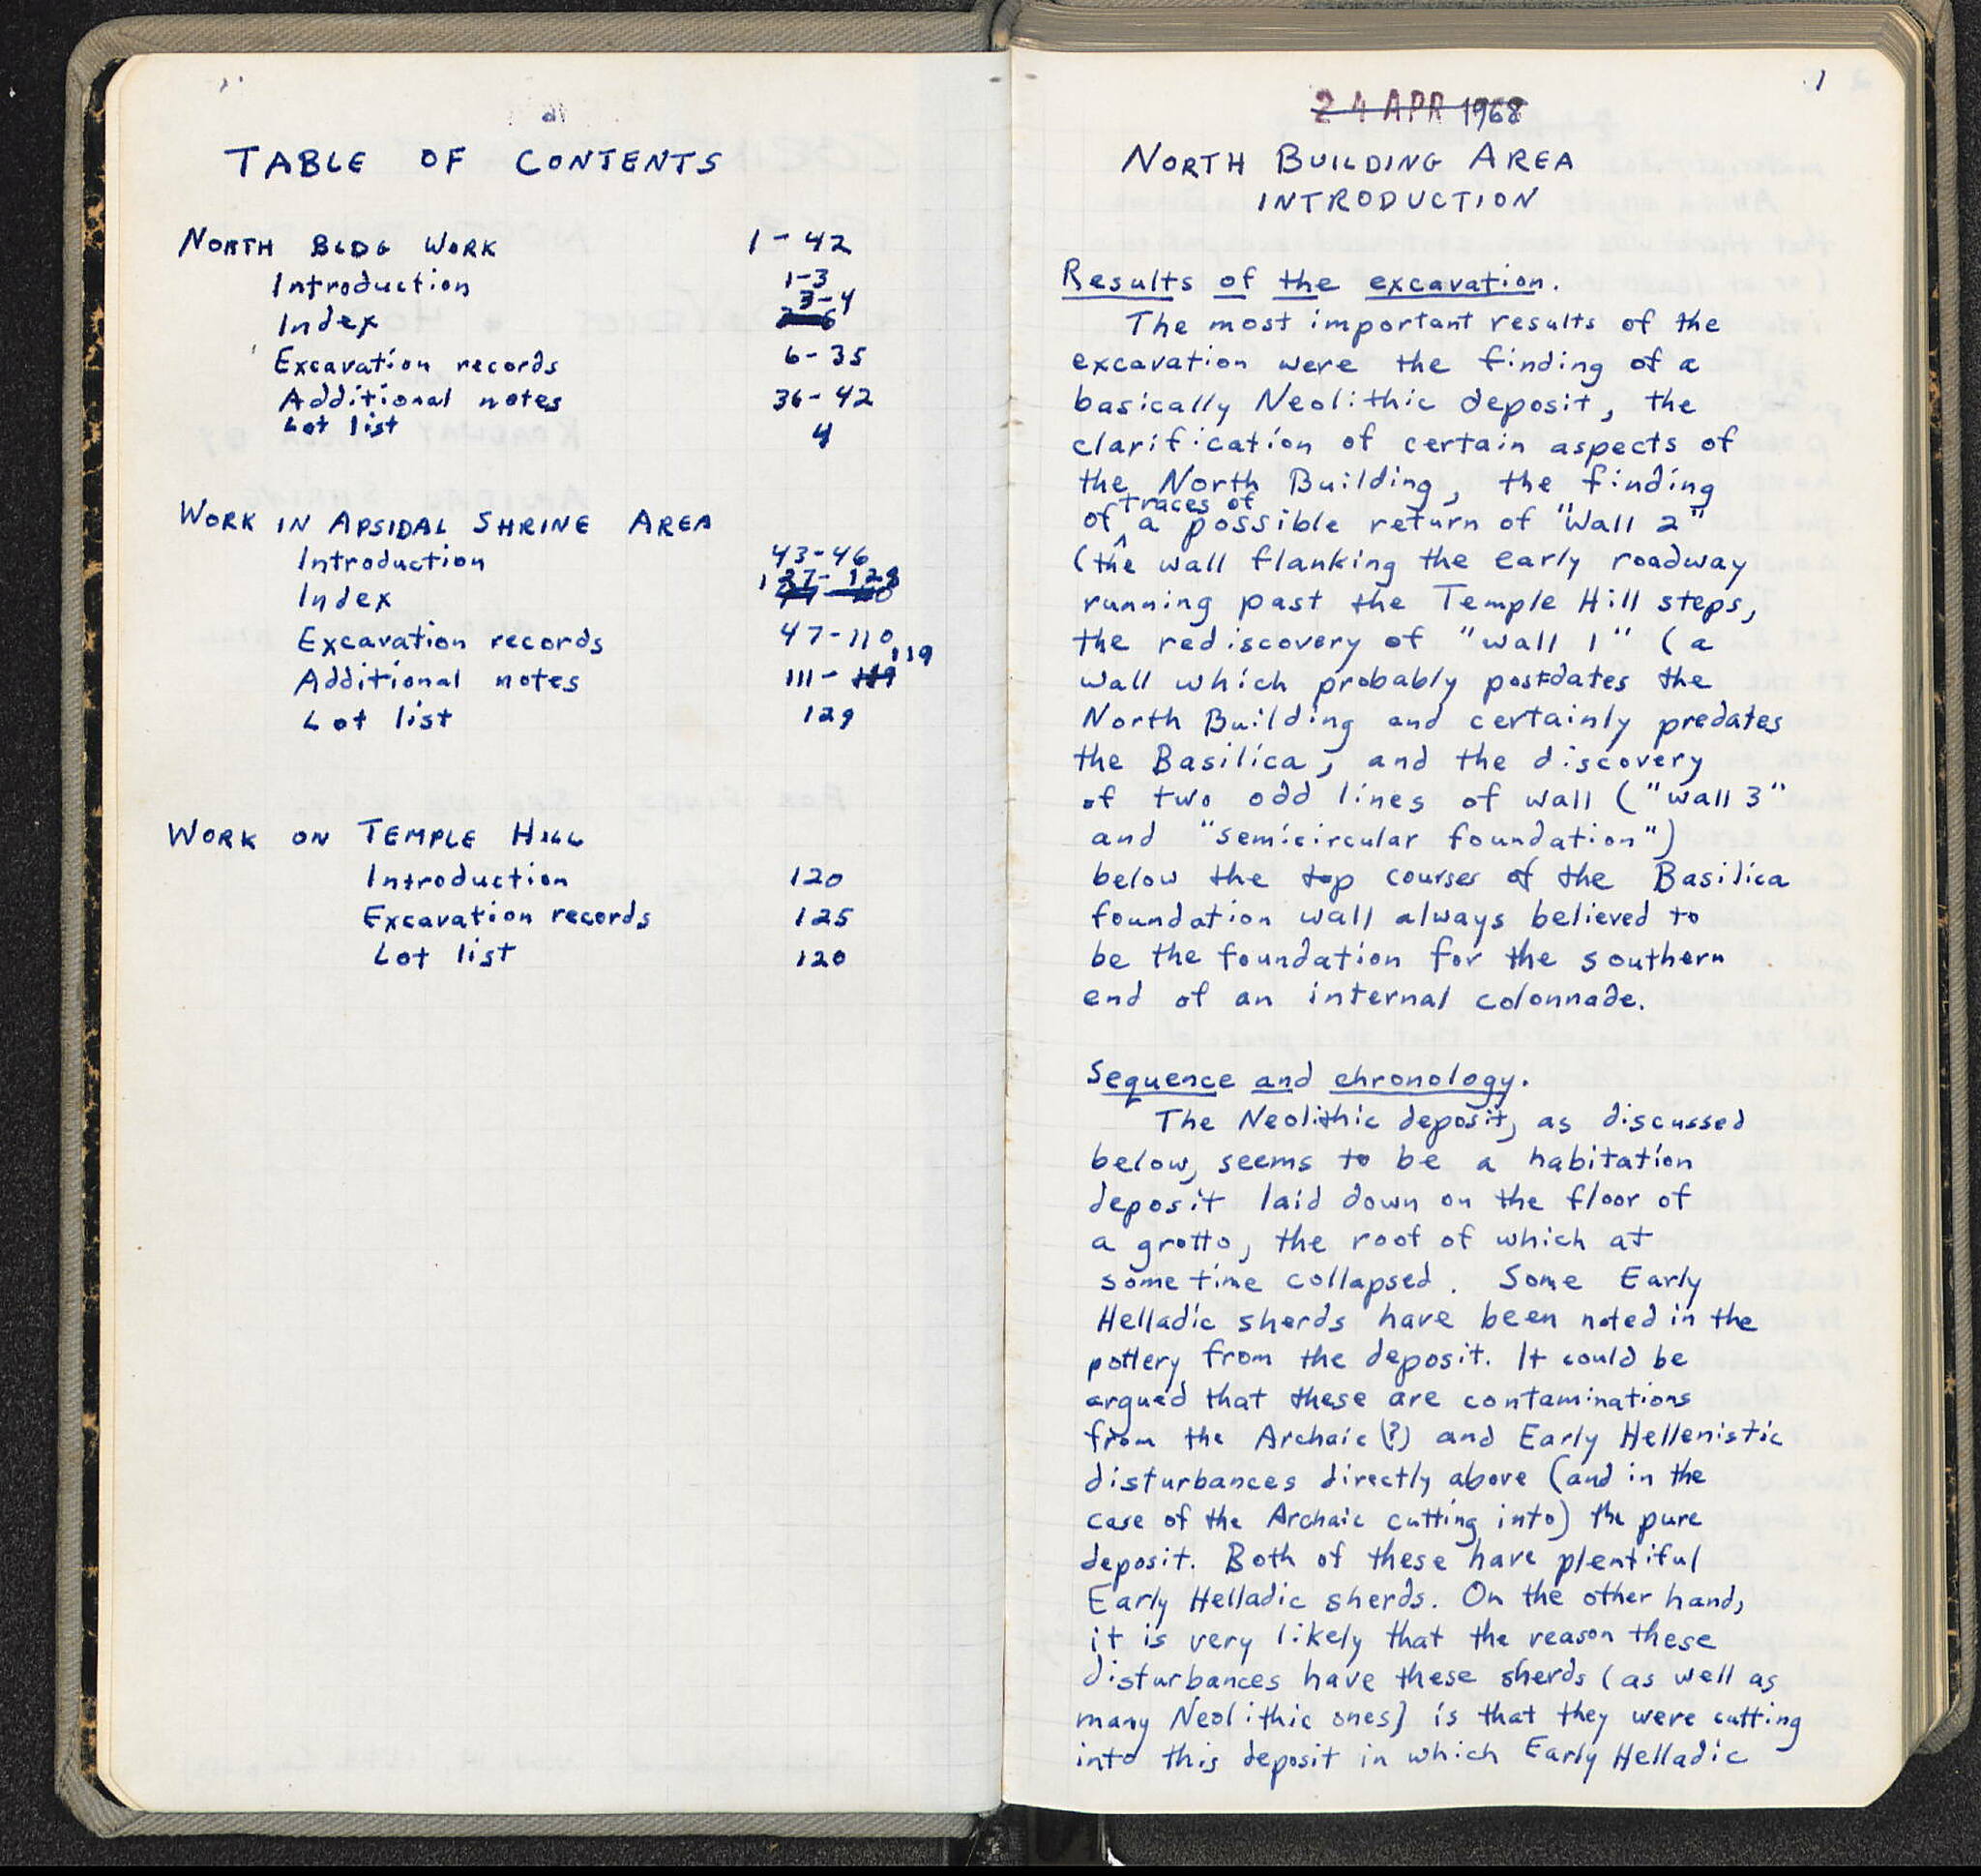 TABLE OF CONTENTS
NORTH BLDG WORK 1-42
Introduction 1-3
Index 3-4
Excavation records 6-35
Additional notes 36-42
Lot list 4
WORK IN APSIDAL SHRINE AREA
Introduction 43-46
Index 127-128
Excavation records 47-110
Additional notes 111-119 119
Lot list 129
WORK ON TEMPLE HILL
Introduction 120
Excavation records 125
Lot list 120
1
24 APR 1968
NORTH BUILDING AREA
INTRODUCTION
Results of the excavation.
The most important results of the
excavation were the finding of a
basically Neolithic deposit, the
clarification of certain aspects of
the North Building, the finding
traces of
of a possible return of "Wall 2"
(the wall flanking the early roadway
running past the Temple Hill steps,
the rediscovery of "wall 1" (a
wall which probably postdates the
North Building and certainly predates
the Basilica, and the discovery
of two odd lines of wall ("wall 3"
and "semicircular foundation")
below the top courses of the Basilica
foundation wall always believed to
be the foundation for the southern
end of an internal colonnade.
Sequence and chronology.
The Neolithic deposit, as discussed
below, seems to be a habitation
deposit laid down on the floor of
a grotto, the roof of which at
some time collapsed. Some Early
Helladic sherds have been noted in the
pottery from the deposit. It could be
argued that these are contaminations
from the Archaic (?) and Early Hellenistic
disturbances directly above (and in the
case of the Archaic cutting into) the pure
deposit. Both of these have plentiful
Early Helladic sherds. On the other hand,
it is very likely that the reason these
disturbances have these sherds (as well as
many Neolithic ones) is that they were cutting
into this deposit in which Early Helladic